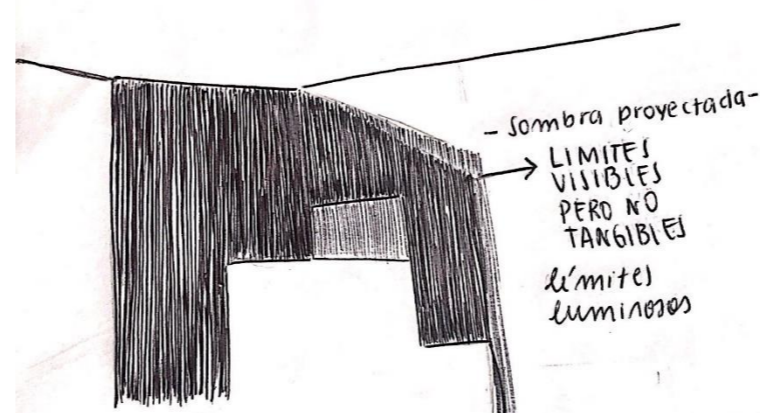 - sombra proyectada -
LIMITES
VISIBLES
PERO NO
TANGIBLES
límites
luminosos